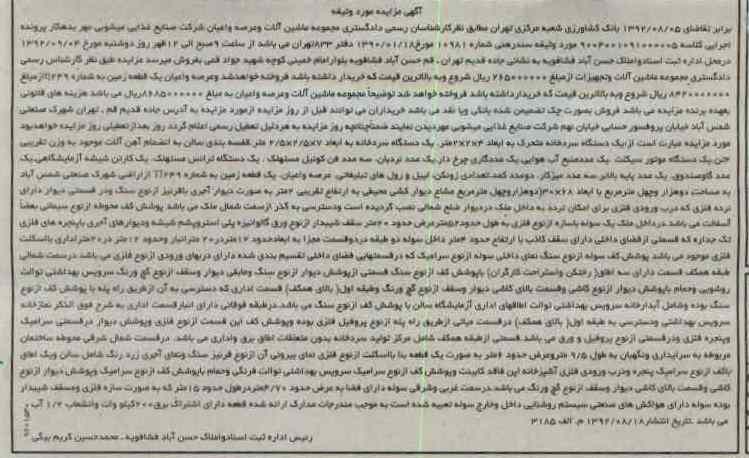 آگهی مزایده مورد وثیقه
برابر تقاضای ۱۳۹۲/۰۸/۰۵ بانک کشاورزی شعبه مرکزی تهران مطابق نظر کارشناسان رسمی دادگستری مجموعه ماشین آلات وعرصه واعیان شرکت صنایع غذایی میشویی مهر بدهکار پرونده
اجرایی کلاسه ۹۰۰۴۰۰۱۰۹۱۰۰۰۰۰۵ مورد وثیقه سندرهنی شماره ۱۰۹۸۱ مورخ۱۳۹۰/۰۱/۱۸ دفتر ۸۳۳تهران می باشد از ساعت ۹صبح الی ۱۲ظهر روز دوشنبه مورخ ۱۳۹۲/۰۹/۰۴
درمحل اداره ثبت اسنادواملاک حسن آباد فشافویه به نشانی جاده قدیم تهران ـ قم حسن آباد فشافویه بلوارامام خمینی کوچه شهید جواد قمی بفروش میرسد مزایده طبق نظر کارشناس رسمی
دادگستری مجموعه ماشین آلات وتجهیزات ازمبلغ ۲۶۵۰۰۰۰۰۰ ریال شروع وبه بالاترین قیمت که خریدار داشته باشد فروخته خواهدشد وعرصه واعیان یک قطعه زمین به شماره ۲۴۹ ازمبلغ
۸۴۲۰۰۰۰۰۰۰ ریال شروع وبه بالاترین قیمت که خریدارداشته باشد فروخته خواهد شد توضیحاً مجموعه ماشین آلات وعرصه واعیان به مبلغ ۸۶۸۵۰۰۰۰۰۰ریال می باشد هزینه های قانونی
بعهده برنده مزایده می باشد فروش بصورت چک تضمین شده بانکی ویا نقد می باشد خریداران می توانند قبل از روز مزایده ازمورد مزایده به آدرس جاده قدیم قم ـ تهران شهرک صنعتی
شمس آباد خیابان پروفسور حسابی خیابان نهم شرکت صنایع غذایی میشویی مهردیدن نمایند ضمناًچنانچه روز مزایده به هردلیل تعطیل رسمی اعلام گردد روز بعدازتعطیلی روز مزایده خواهدبود
مورد مزایده عبارت است از:یک دستگاه سردخانه متحرک به ابعاد ۴×۲×۲ متر ـ یک دستگاه سردخانه به ابعاد ۷×۲/۵×۲/۵ متر ـ قفسه بندی سالن به انضمام آهن آلات موجود به وزن تقریبی
تن،یک دستگاه موتور سیکلت ـ یک عددمنبع آب هوایی یک عددگاری چرخ دار،یک عدد نردبان، سه عدد فن کوئیل مستهلک، یک دستگاه ترانس مستهلک، یک کارتن شیشه آزمایشگاهی،یک
عدد گاوصندوق، یک عدد پایه بالابر،سه عدد میزکار، دوعدد کمد،تعدادی زونکن، لیبل و رول های تبلیغاتی. عرصه واعیان، یک قطعه زمین به شماره ۲۴۹ ازاراضی شهرک صنعتی شمس آباد
به مساحت دوهزار وچهل مترمربع با ابعاد ۶۸×۳۰(دوهزاروچهل مترمربع مشاع دیوار کشی محیطی به ارتفاع تقریبی ۲متر به صورت دیوار آجری باقرنیز ازنوع سنگ ودر قسمتی دیوار دارای
نرده فلزی که درب ورودی فلزی برای امکان تردد به داخل ملک دردیوار ضلع شمالی نصب گردیده است ودسترسی به گذر ازسمت شمال ملک می باشد پوشش کف محوطه ازنوع سیمانی بعضاً
آسفالت می باشد.درداخل ملک یک سوله باسازه ازنوع فلزی به طول حدود۵۲مترعرض حدود ۲۰متر سقف شیبدار ازنوع ورق گالوانیزه پلی استروپشم شیشه ودیوارهای آجری باپنجره های فلزی
تک جداره که قسمتی ازفضای داخلی دارای سقف کاذب با ارتفاع حدود ۴متر داخل سوله دو طبقه دردوقسمت مجزا به ابعادحدود ۱۲متردر۲۰ مترانبار وحدود ۱۲متر در۲۰متراداری بااسکلت
فلزی موجود می باشد پوشش کف سوله ازنوع سنگ نمای داخلی سوله ازنوع سرامیک که درقسمتهایی فضای داخلی تقسیم بندی شده دارای دربهای ورودی ازنوع فلزی می باشد درسمت شمالی
طبقه همکف قسمت دارای سه اطاق( رختکن واستراحت کارگران) باپوشش کف ازنوع سنگ قسمتی ازپوشش دیوار ازنوع سنگ ومابقی دیوار وسقف ازنوع گچ ورنگ سرویس بهداشتی توالت
روشویی وحمام باپوشش دیوار ازنوع کاشی وقسمت بالای کاشی دیوار وسقف ازنوع گچ ورنگ وطبقه اول( بالای همکف) قسمت اداری که دسترسی به آن ازطریق راه پله با پوشش کف ازنوع
سنگ بوده وشامل آبدارخانه سرویس بهداشتی توالت اطاقهای اداری آزمایشگاه سالن با پوشش کف ازنوع سنگ می باشد.درطبقه فوقانی دارای انبارقسمت اداری به شرح فوق الذکر نمازخانه
سرویس بهداشتی ودسترسی به طبقه اول( بالای همکف) درقسمت میانی ازطریق راه پله ازنوع پروفیل فلزی بوده وپوشش کف این قسمت ازنوع فلزی وپوشش دیوار درقسمتی سرامیک
وپنجره فلزی ودرقسمتی ازنوع پروفیل و ورق می باشد.قسمتی ازطبقه همکف شامل مرکز تولید سردخانه بدون متعلقات اطاق برق واداری می باشد. درقسمت شمال شرقی محوطه ساختمان
مربوطه به سرایداری ونگهبان به طول ۹/۵ مترومرض حدود ۶متر به صورت یک قطعه بنا بااسکلت ازنوع فلزی نمای بیرونی آن ازنوع قرنیز سنگ ونمای آجری زرد رنگ شامل سالن ویک اطاق
باکف ازنوع سرامیک پنجره ودرب ورودی فلزی آشپزخانه اپن فاقد کابینت وپوشش کف ازنوع سرامیک سرویس بهداشتی توالت فرنگی وحمام باپوشش کف ازنوع سرامیک وپوشش دیوار ازنوع
کاشی وقسمت بالای کاشی دیوار وسقف ازنوع گچ ورنگ می باشد.درسمت غربی وشرقی سوله دارای فضا به عرض حدود ۶/۷۰متردرطول حدود ۱۵متر که به صورت سازه فلزی ومسقف شیبدار
بوده سوله دارای هواکش های صنعتی سیستم روشنایی داخل وخارج سوله تعبیه شده است به موجب مندرجات مدارک ارائه شده قطعه دارای اشتراک برق۲۰۰کیلو وات وانشعاب ۱/۲ آب
می باشد .تاریخ انتشار۱۳۹۲/۰۸/۱۸ م. الف ۳۱۸۵
رئیس اداره ثبت اسنادواملاک حسن آباد فشافویه ـ محمدحسین کریم بیگی